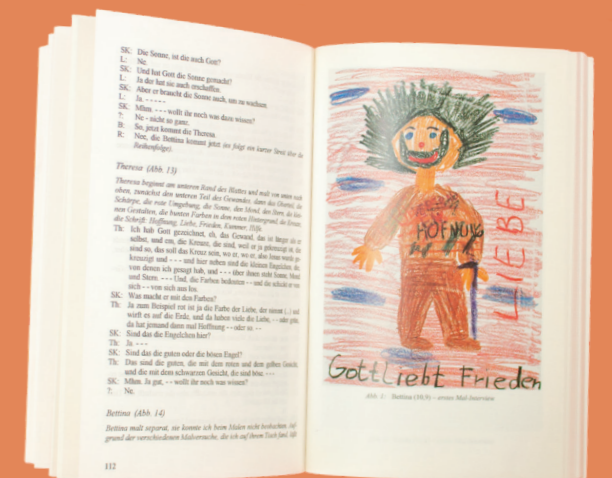 SK: Die Sonne, ist die auch Gott?
L: Ne.
SK: Und hat Gott die Sonne gemacht?
L: Ja der hat sie auch erschaffen.
SK: Aber er braucht die Sonne auch, um zu wachsen.
L: Ja. - - - - -
SK: Mhm. - - - wollt ihr noch was dazu wissen?
?: Ne - nicht so ganz.
B: So, jetzt kommt die Theresa.
R: Nee, die Bettina kommt jetzt (es folgt ein kurzer Streit über die
Reihenfolge).
Theresa (Abb. 13)
Theresa beginnt am unteren Rand des Blattes und malt von unten nach
oben, zunächst den unteren Teil des Gewandes, dann das Oberteil, die
Schärpe, die rote Umgebung, die Sonne, den Mond, den Stern, die klei-
nen Gestalten, die bunten Farben in dem roten Hintergrund, die Kreuze,
die Schrift: Hoffnung, Liebe, Frieden, Kummer, Hilfe.
Th: Ich hab Gott gezeichnet, eh, das Gewand, das ist länger als er
selbst, und em, die Kreuze, die sind, weil er ja gekreuzigt ist, die
sind so, das soll das Kreuz sein, wo er, wo er, also Jesus wurde ge-
kreuzigt und - - - und hier neben sind die kleinen Engelchen, die,
von denen ich gesagt hab, und - - - über ihnen steht Sonne, Mond
und Stern. - - - Und, die Farben bedeuten - - und die schickt er von
sich - - von sich aus los.
SK: Was macht er mit den Farben?
Th: Ja zum Beispiel rot ist ja die Farbe der Liebe, der nimmt (..) und
wirft es auf die Erde, und da haben viele die Liebe, - - oder grün,
da hat jemand dann mal Hoffnung - - oder so. - -
SK: Sind das die Engelchen hier?
Th: Ja. - - -
SK: Sind das die guten oder die bösen Engel?
Th: Das sind die guten, die mit dem roten und dem gelben Gesicht,
und die mit dem schwarzen Gesicht, die sind böse. - - -
SK: Mhm. Ja gut, - - wollt ihr noch was wissen?
?: Ne.
Bettina (Abb. 14)
Bettina malt separat, sie konnte ich beim Malen nicht beobachten. Auf-
grund der verschiedenen Malversuche, die ich auf ihrem Tisch fand, läßt
112
HOFNUNG
LIEBE
Gott Liebt Frieden
Bettina - erstes Mal-Interview